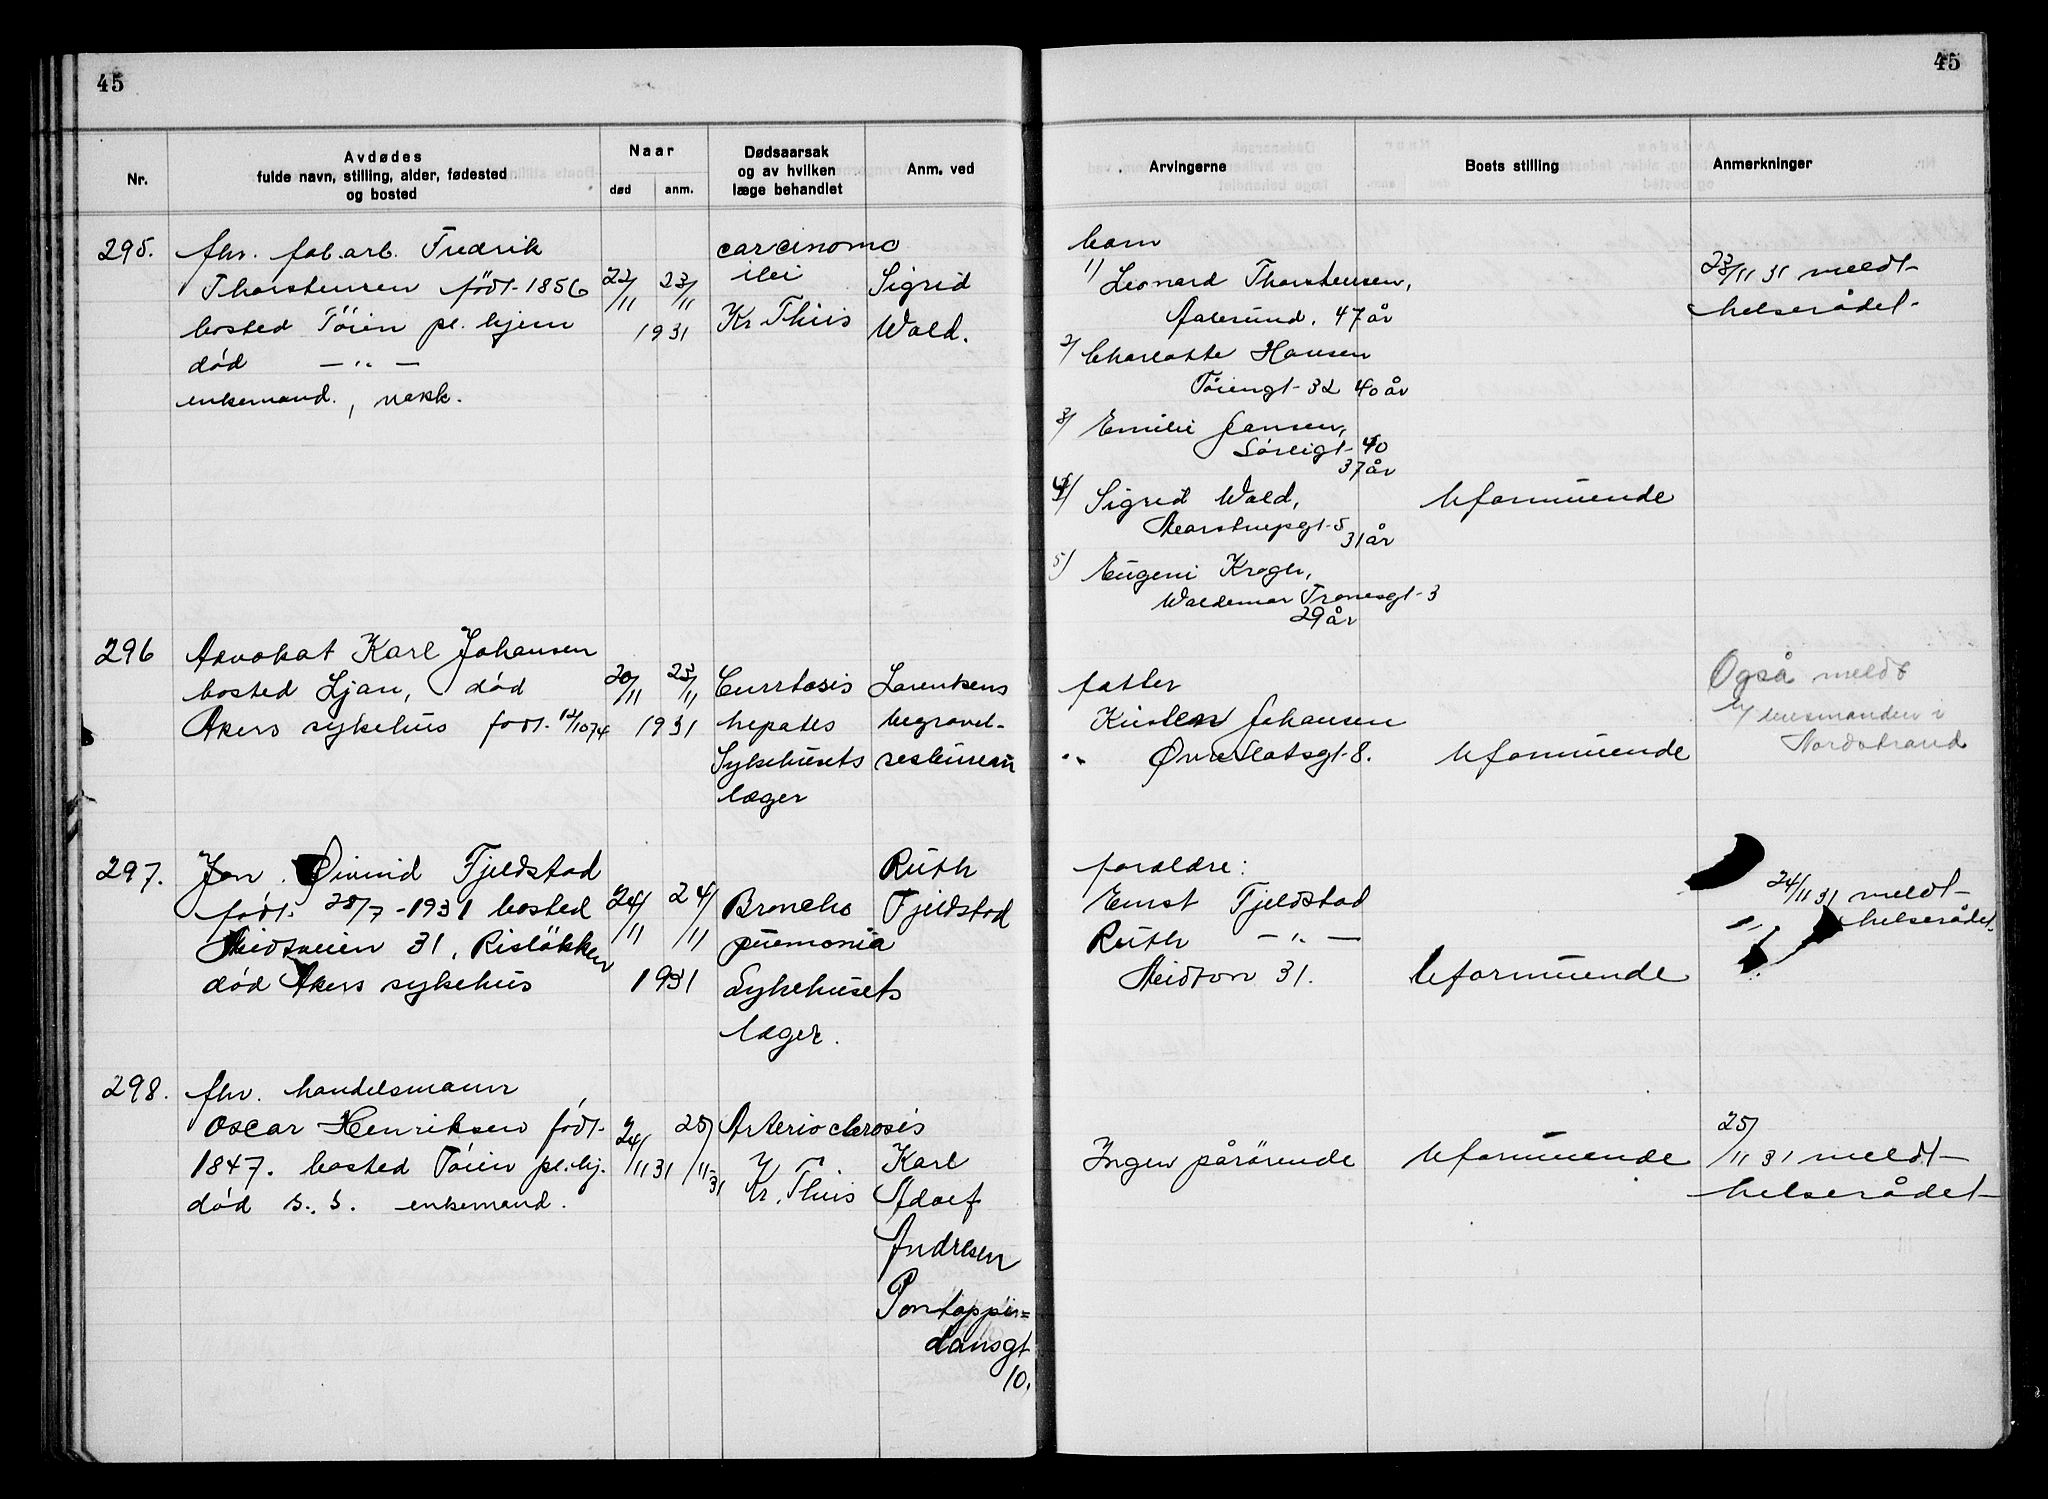 45
45
Nr.
Avdødes
fulde navn, stilling, alder, fødested
og bosted
Naar
død
anm.
Dødsaarsak
og av hvilken
læge behandlet
Anm. ved
Arvingerne
Boets stilling
Anmerkninger
295.
fhv. fab.arb. Fredrik
Thorstensen født 1856
bosted Tøien pl. hjem
død — " —
enkemand, vakk.
22/11 23/11
1931
carcinoma
ilei
Kr. Thiis
Sigrid
Wold.
barn
1/ Leonard Thorstensen,
Aalesund, 47 år
2/ Charlotte Hansen
Tøiengt 32 40 år
3/ Emilie Jansen,
Sørligt 40
37 år
4/ Sigrid Wold,
Marstrupsgt 5
31 år
5/ Eugeni Krogh,
Waldemar Tranesgt 3
29 år
Uformuende
23/11 31 meldt
helserådet
296
Advokat Karl Johansen
bosted Ljan, død
Akers sykehus født 12/10 74
20/11 23/11
1931
Cirrhosis
hepatis
Sykehusets
læger
Lorentzens
begravel-
sesbureau
fatter
Kirsten Johansen
Øvre Slotsgt 8.
Uformuende
Også meldt
t/ lensmanden i
Nordstrand
297.
Jon Øivind Fjeldstad
født 28/7 - 1931 bosted
31, Risløkken
død Akers sykehus
24/11 24/11
1931
Broncho
pnemonia
Sykehusets
læger.
Ruth
Fjeldstad
forældre:
Ernst Fjeldstad
Ruth — " —
31.
Uformuende
24/11 31 meldt
helserådet
298.
fhv. handelsmann
Oscar Henriksen født
1847. bosted Tøien pl.hj.
død s. s. enkemand.
24/11 31 25/11 31
Arteriosclerosis
Kr. Thiis
Karl
Adolf
Andresen
Pontoppi=
dansgt
10.
Ingen pårørende
Uformuende
25/11 31 meldt
helserådet